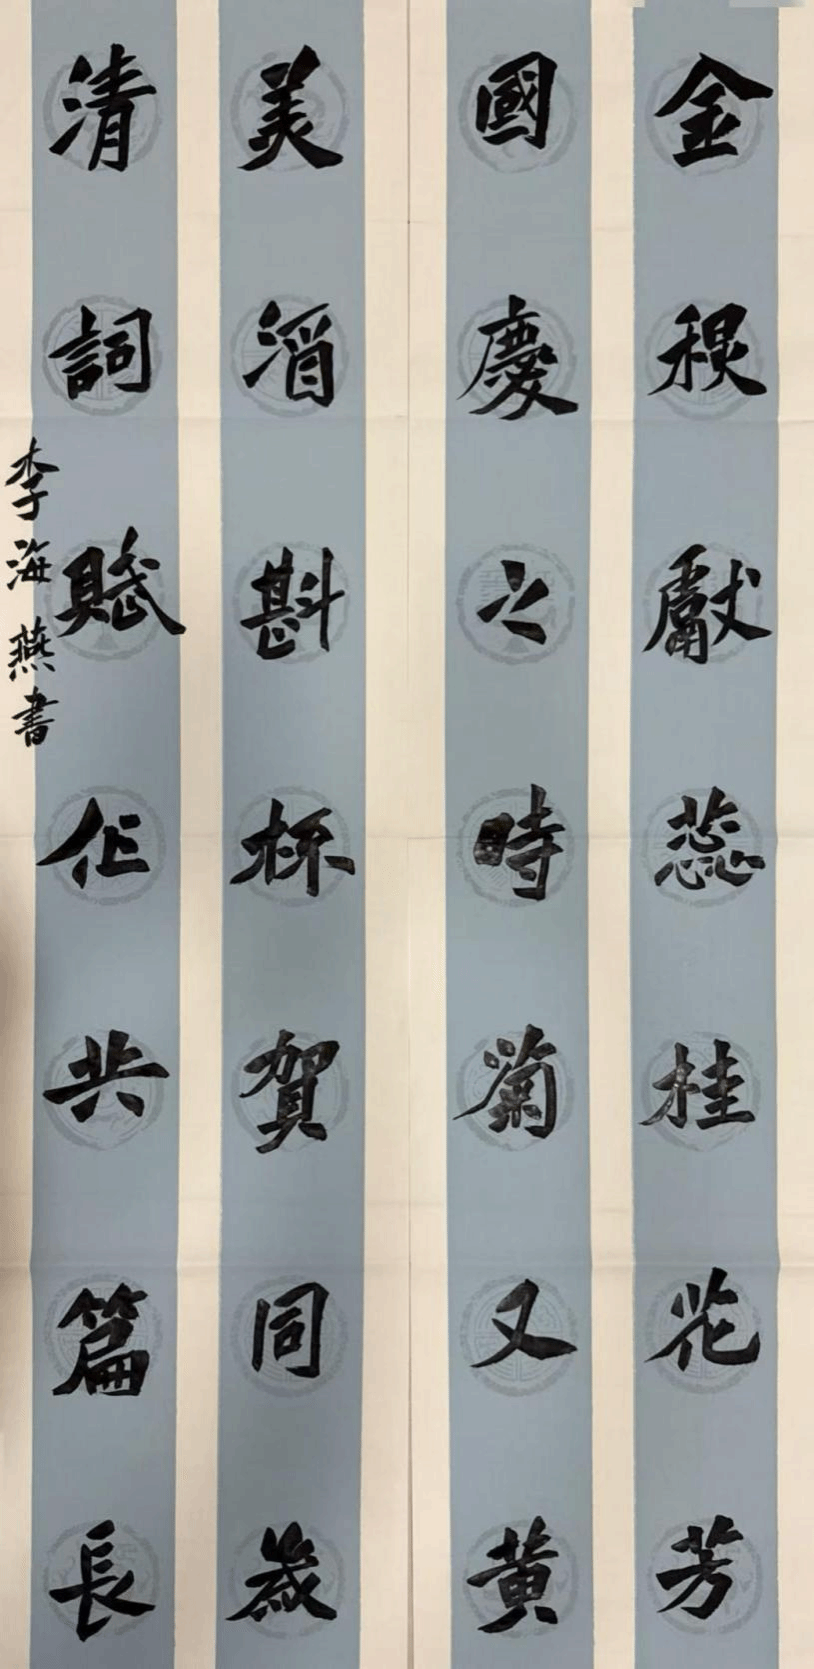 金稷獻蕊桂花芳
國慶之時菊又黃
美酒斟杯賀同歲
清詞賦作共篇長
李海燕書